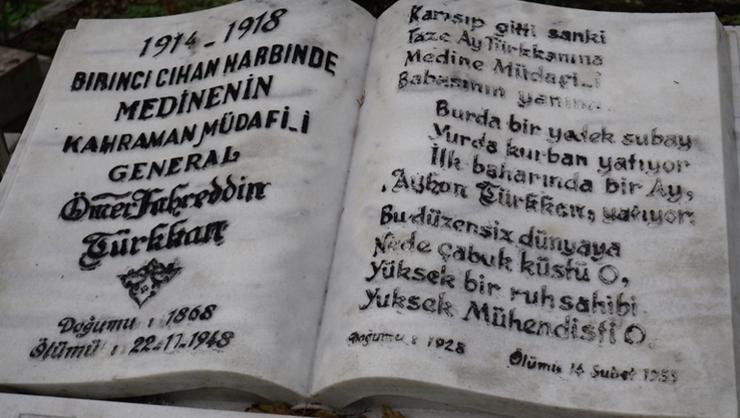 1914 - 1918
BIRINCI CIHAN HARBINDE
MEDINENIN
KAHRAMAN MÜDAFİ-İ
GENERAL
Ömer Fahreddin
Türkkan
Doğumu : 1868
Ölümü : 22-11-1948
Karışıp gitti sanki
Taze Ay Türkkanına
Medine Müdafi-i
Babasının yanına...
Burda bir yedek subay
Yurda kurban yatıyor
İlk baharında bir Ay,
Ayhan Türkkan, yatıyor.
Bu düzensiz dünyaya
Nede çabuk küstü O,
Yüksek bir ruh sahibi
Yuksek Mühendisti O.
Doğumu : 1928
Ölümü 14 Şubat